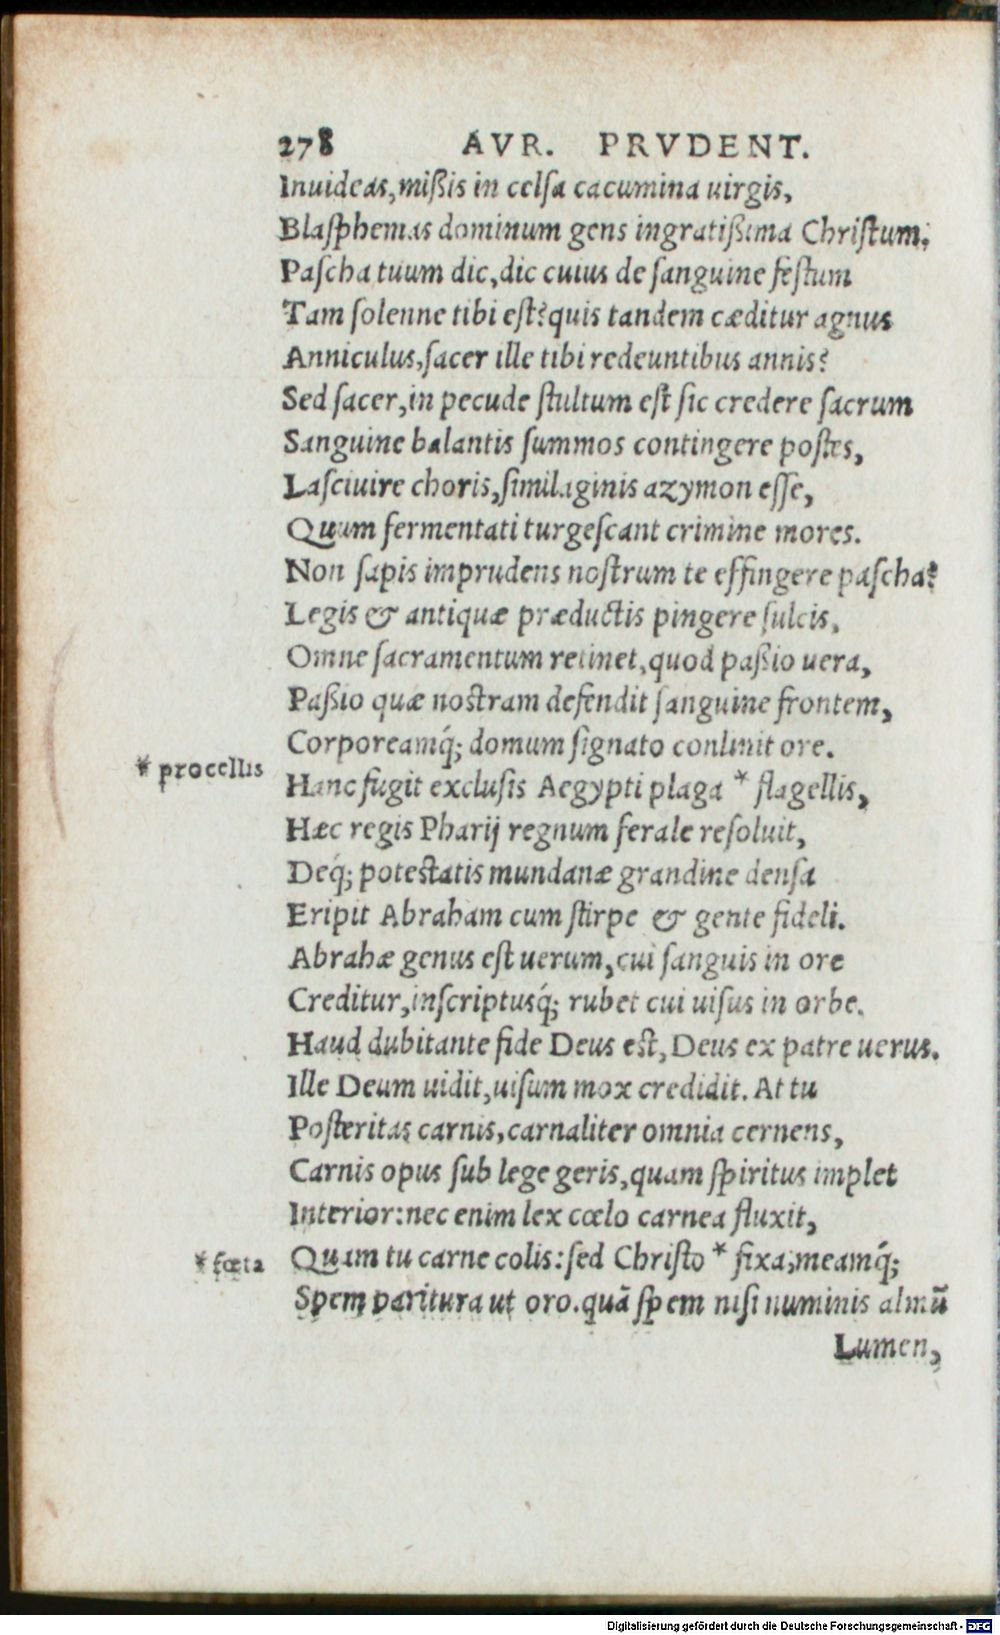 278 AVR. PRVDENT.
Inuideas, mißis in celsa cacumina uirgis,
Blasphemas dominum gens ingratißima Christum.
Pascha tuum dic, dic cuius de sanguine festum
Tam solenne tibi est? quis tandem cæditur agnus
Anniculus, sacer ille tibi redeuntibus annis?
Sed sacer, in pecude stultum est sic credere sacrum
Sanguine balantis summos contingere postes,
Lasciuire choris, similaginis azymon esse,
Quum fermentati turgescant crimine mores.
Non sapis imprudens nostrum te effingere pascha?
Legis & antiquæ præductis pingere sulcis,
Omne sacramentum retinet, quod paßio uera,
Paßio quæ nostram defendit sanguine frontem,
Corporeamq́; domum signato conlinit ore.
* procellis
Hanc fugit exclusis Aegypti plaga * flagellis,
Hæc regis Pharij regnum ferale resoluit,
Deq́; potestatis mundanæ grandine densa
Eripit Abraham cum stirpe & gente fideli.
Abrahæ genus est uerum, cui sanguis in ore
Creditur, inscriptusq́; rubet cui uisus in orbe.
Haud dubitante fide Deus est, Deus ex patre uerus.
Ille Deum uidit, uisum mox credidit. At tu
Posteritas carnis, carnaliter omnia cernens,
Carnis opus sub lege geris, quam spiritus implet
Interior: nec enim lex cœlo carnea fluxit,
* fœta
Quam tu carne colis: sed Christo * fixa, meamq́;
Spem paritura ut oro. quã spem nisi numinis almũ
Lumen,
Digitalisierung gefördert durch die Deutsche Forschungsgemeinschaft - DFG